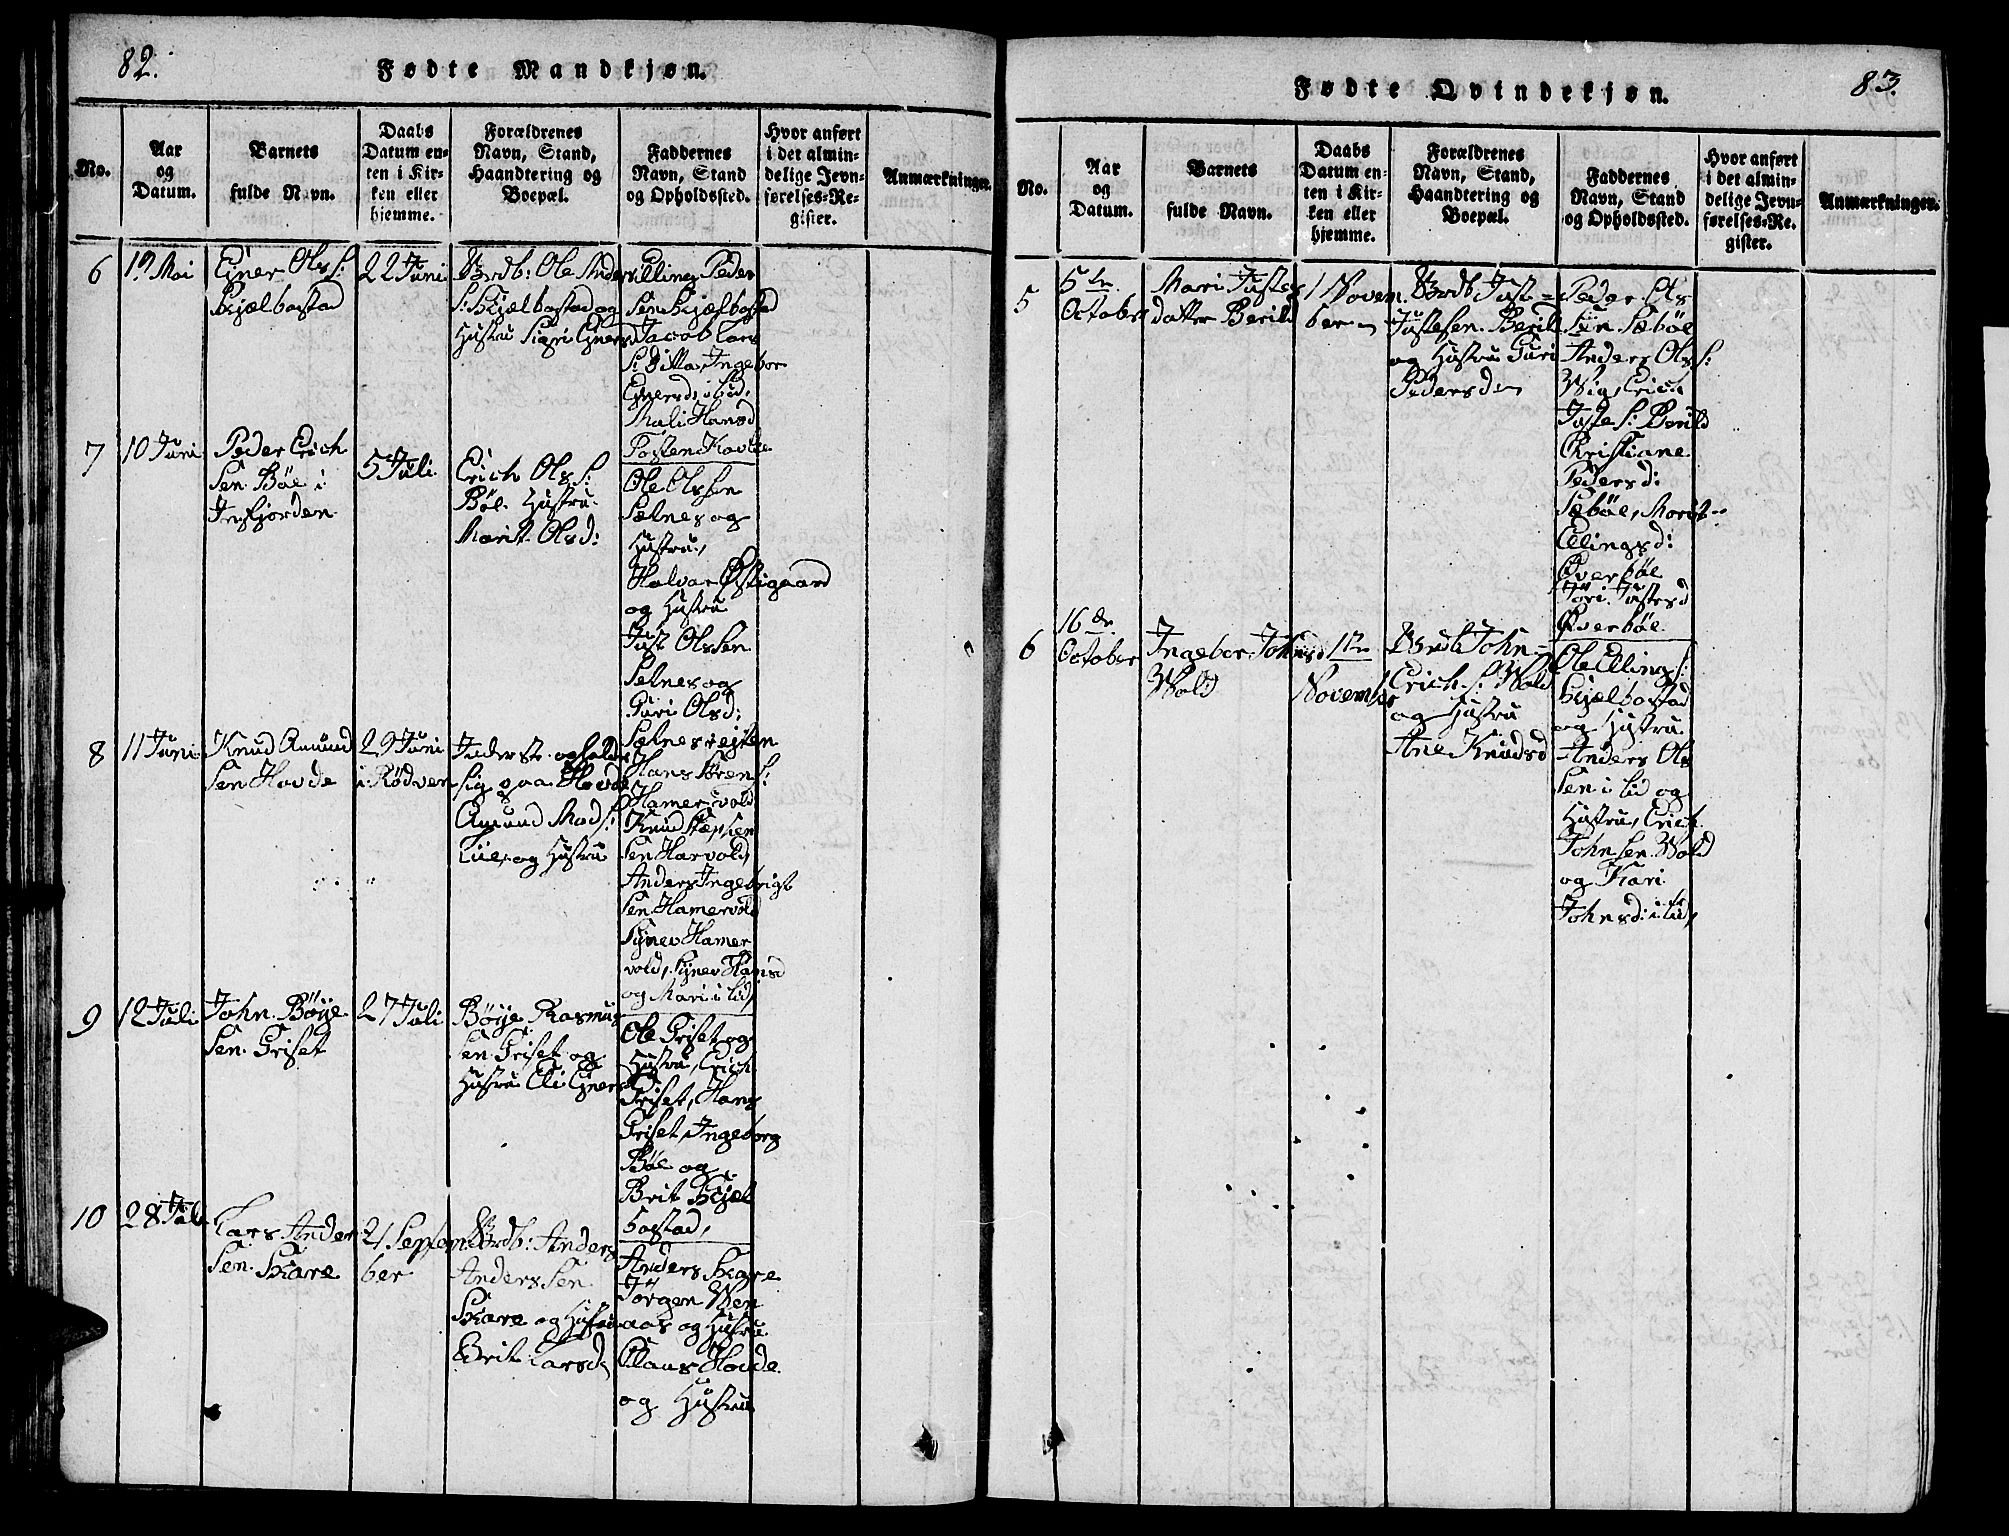 82.
Fødte Mandkjøn.
No.
Aar
og
Datum.
Barnets
fulde Navn.
Daabs
Datum en-
ten i Kir-
ken eller
hjemme.
Forældrenes
Navn, Stand,
Haandtering og
Boepæl.
Faddernes
Navn, Stand
og Opholdssted.
Hvor anført
i det almin-
delige Jevn-
førelses-Re-
gister.
Anmærkninger.
6
19 Mai
Ejner Ols S:
Skjælbostad
22 Juni
Brdb: Ole Anders
S: Skjælbostad og
Hustru Sigri Ejnersd
Elling Peder
Sen Skjælbostad
Jacob Lars
S: Ditto, Ingebor
Ejnersd i Lid,
Mali Hansd
Tosten Hovde
7
10 Juni
Peder Erich
Sen Böe i
Insfjorden
5 Juli
Erich Ols S:
Böe Hustru
Marit Olsd:
Ole Olssen
Sælnes og
Hustru,
Halvor Østigaard
og Hustru
Just Olssen
Selnes og
Guri Olsd:
Sælnes
8
11 Juni
Knud Amund
Sen Hovde
29 Juni
i Rödven
Inderst opholder
sig paa Hovde
Amund Mads S:
Lie, og Hustru
Hans Sören S:
Hamervold
Knud
Sen Harvold,
Anders Ingebrigt
Sen Hamervold
Synev Hamer
vold, Synev Hansd
og Mari i Lid,
9
12 Juli
John Böye
Sen Griset
27 Juli
Böye Rasmus
Sen Griset og
Hustru Eli Ejnersd
Ole Griset og
Hustru, Erich
Griset, Hans
Griset, Ingeborg
Böe og
Brit Skjæl
bostad,
10
28 Juli
Lars Ander
Sen Skare
21 Septem
ber
Brdb: Anders
Anders Sen
Skare og Hustru
Brit Larsd
Anders Skare
Jörgen Wen
aas og Hustru
Claus Hovde
og Hustru
83.
Fødte Qvindekjøn.
No.
Aar
og
Datum.
Barnets
fulde Navn.
Daabs
Datum en-
ten i Kir-
ken eller
hjemme.
Forældrenes
Navn, Stand,
Haandtering og
Boepæl.
Faddernes
Navn, Stand
og Opholdssted.
Hvor anført
i det almin-
delige Jevn-
førelses-Re-
gister.
Anmærkninger.
5
5te
October
Mari Justes
datter Berild
1 Novem
ber
Brdb Just
Justesen Berild
og Hustru Guri
Pedersd
Peder Ols
Sen Sæböe
Anders Ols S:
Wig, Erich
Juste S: Berild
Christiane
Pedersd:
Sæböe, Marit
Ellingsd:
Överböe
Jöri Justesd
Överböe
6
16de
October
Ingebor Johnsd
Wold
1te
November
Brdb John
Erich S: Wold
og Hustru
Ane Knudsd
Ole Elling S:
Skjælbostad
og Hustru
Anders Ols
Sen i Lid og
Hustru, Erich
Johnsen Wold
og Kari
Johnsd: i Lid,